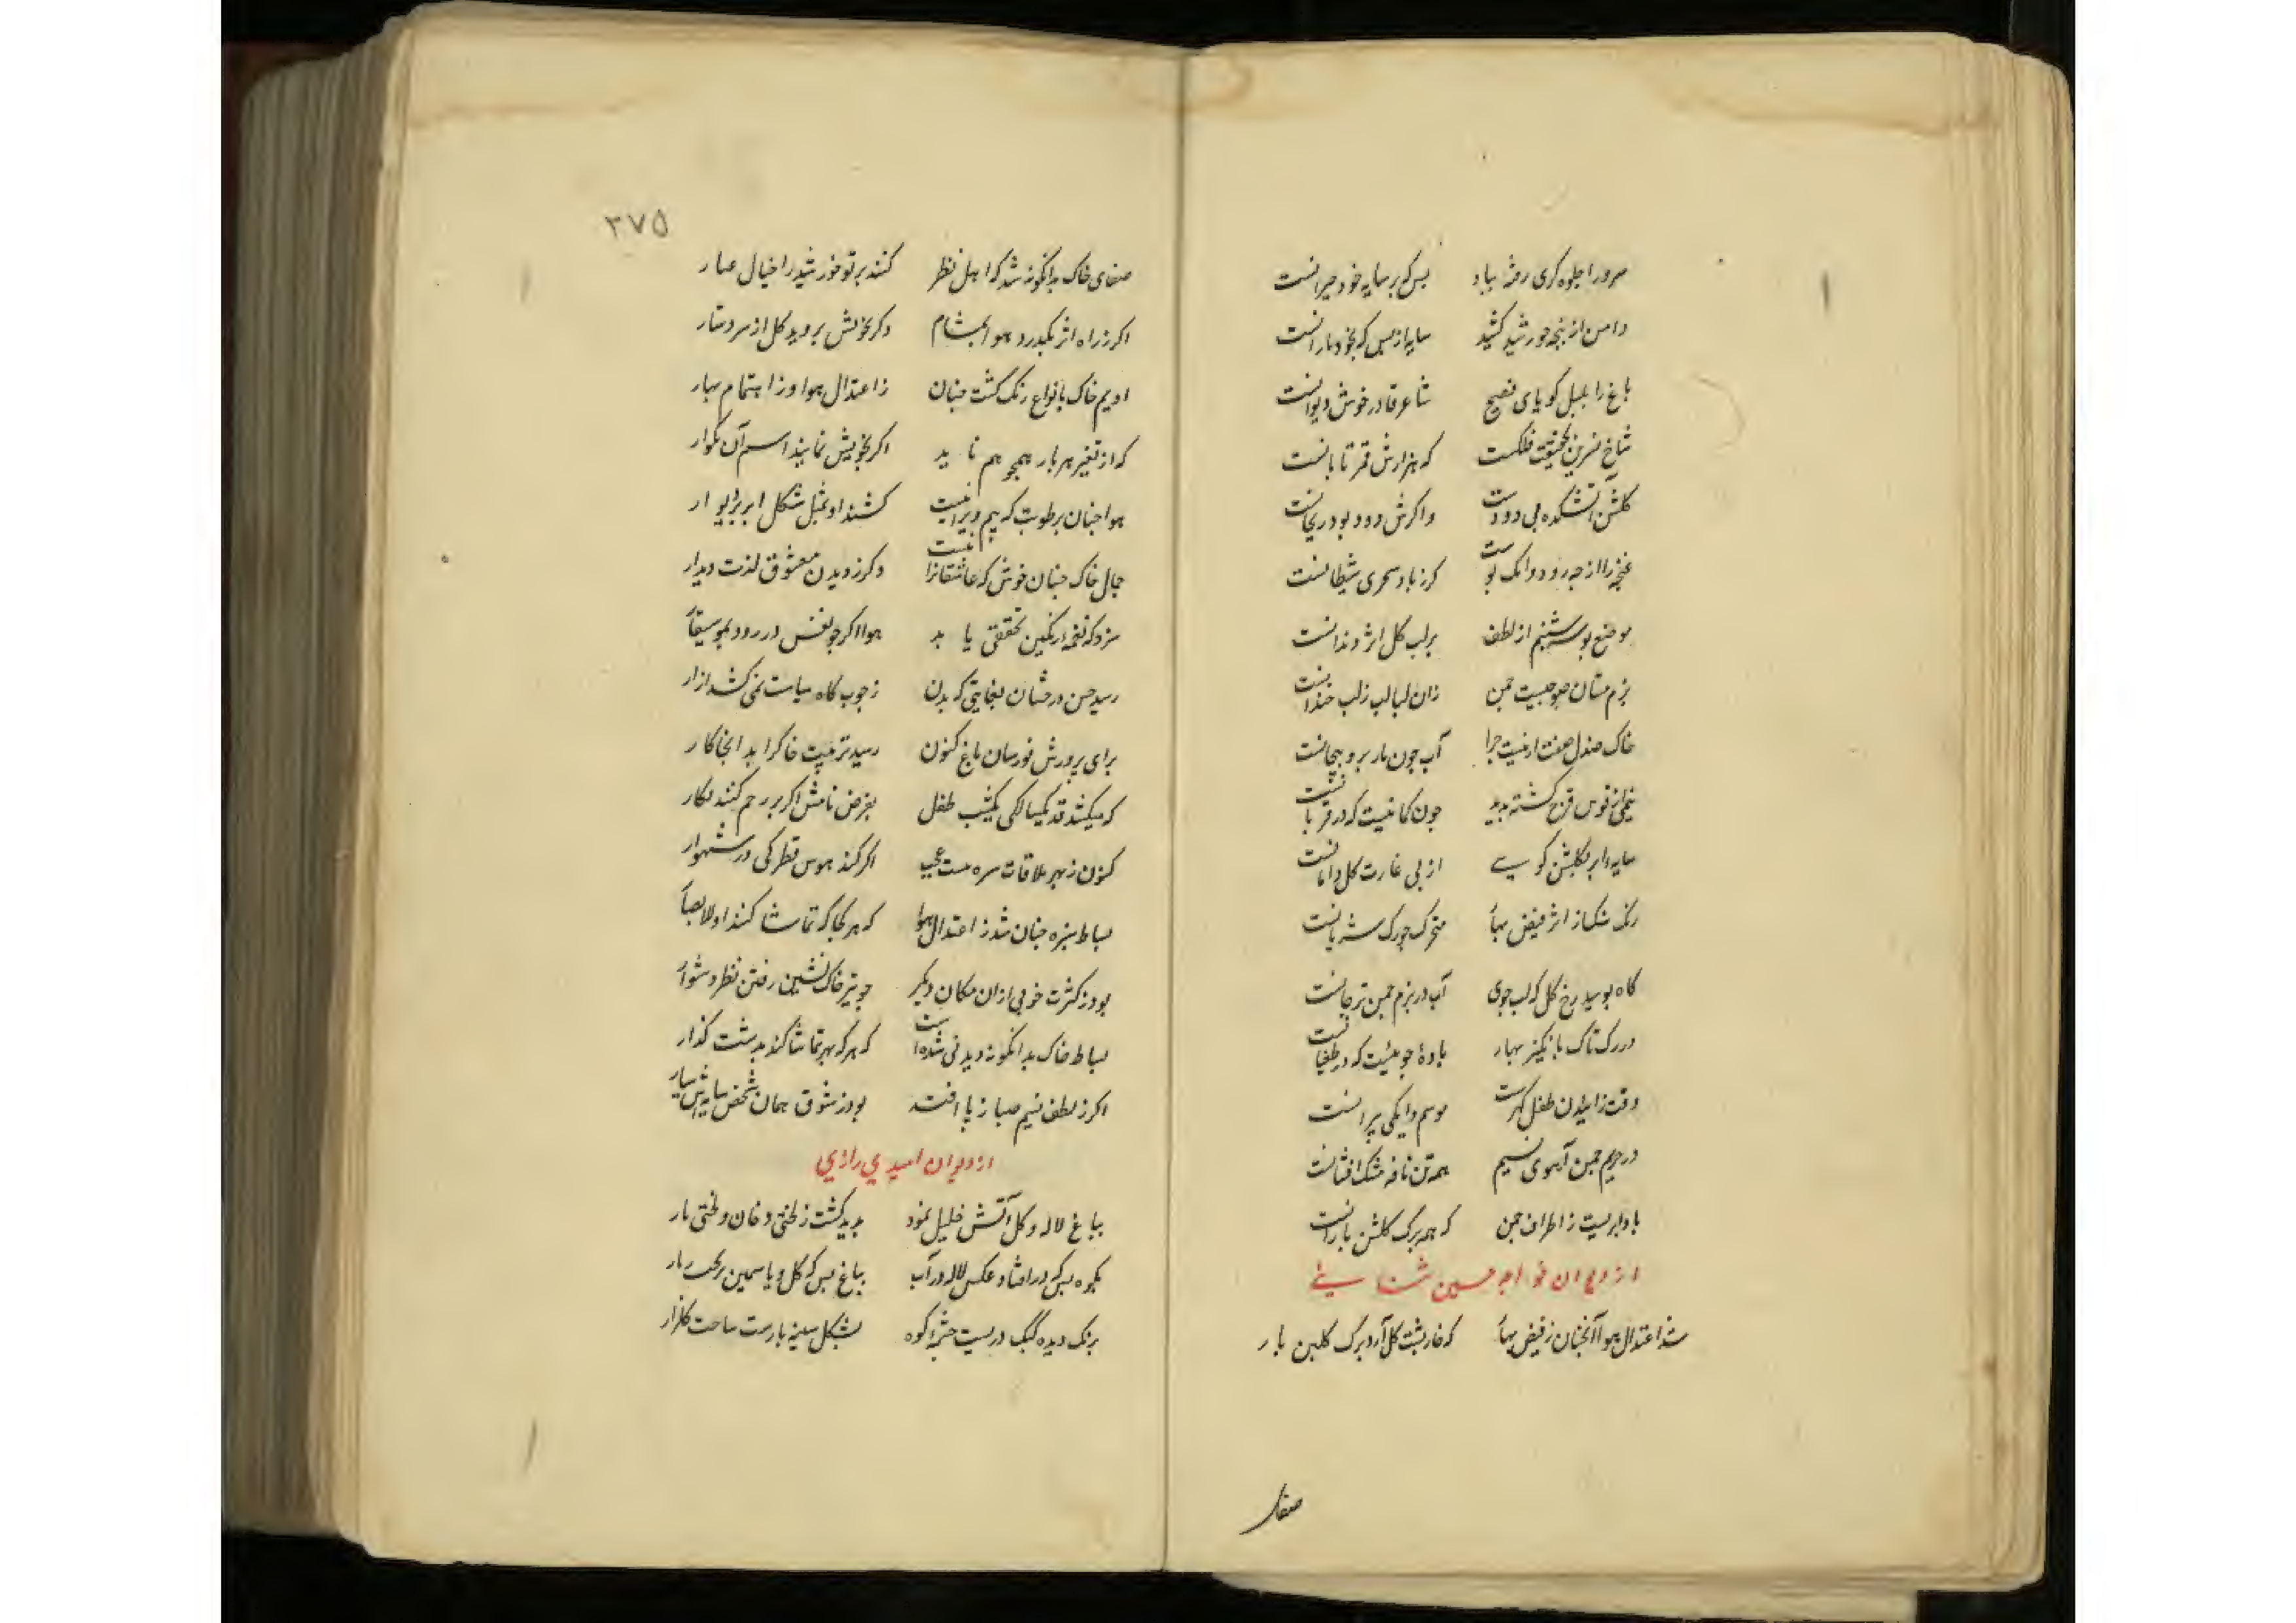 سرو را جلوه کری رفته بیاد بس که بر سایه خود حیرانست
دامن از پنجه خورشید کشید سایه از بس که بخود
باغ را بلبل کویای فصیح شاعر قادر خوش دیوانست
شاخ نسرین بحقیقت فلکست که هزارش قمر تابانست
کلشن آتشکده بی دودست واکرش دود بود ریحانست
غنچه را از چه رو کر ز باد سحری
موضع بوسه شبنم از لطف بر لب کل اثر دندانست
بزم مستان صبوحیست چمن زان لبالب ز لب خندانست
خاک صندل صفت ار نیست چرا آب چون مار برو پیچانست
قوس قزح کشته پدید چون کمانیست که در قربانست
سایه ابر بکلشن کویی از پی غارت کل دامانست
رنک اثر فیض بهار متحرک چو رک شریانست
کاه بوسید رخ کل که لب جوی آب در بزم چمن ترخانست
در رک تاک بانکیز بهار باده جوییست که در طغیانست
وقت زاییدن طفل موسم دایکی پیرانست
در حریم چمن آهوی نسیم همه تن نافه مشک افشانست
باد ابریست ز اطراف چمن که همه برک کلش بارانست
از دیوان خواجه حسین ثنایی
شد اعتدال هوا آنچنان ز فیض بهار که خار پشت کل آرد برک کلبن بار
صفا
٢٧۵
صفای خاک بدانکونه شد که اهل نظر کنند پرتو خورشید را خیال غبار
اکر ز راه اثر بکذرد هوا بمشام دکر بخویش بروید کل از سر دستار
ادیم خاک بانواع رنک کشت چنان ز اعتدال هوا و ز اهتمام بهار
که از تغیر هر بار همچو هم ناید اکر بخویش نمایند اسم آن تکرار
هوا چنان برطوبت که بیم ویرانیست کشند اوبمثل شکل ابر بر دیوار
جمال خاک چنان خوش که عاشقانرا نیست دکر ز دیدن معشوق لذت دیدار
سزد که نغمه رنکین تحققی یابد هوا اکر چو نفس در رود بموسیقار
رسید حسن درختان بغایتی که بدن ز چوب کاه سیاست نمی کشد آزار
برای پرورش نورسان باغ کنون رسید تربیت خاک را بدانجا کار
که میکشد قد یکسالکی بیکشب طفل بفرض نامش اکر بر رحم کنند نکار
کنون ز بهر ملاقات سره مست عجب اکر کند هوس قطرکی در شهوار
بساط سبزه چنان شد ز اعتدال هوا که هر کجا که تماشا کنند اولابصار
بود ز کثرت خوبی از آن مکان دیکر چو تیر خاک نشین رفتن نظر دشوار
بساط خاک بدانکونه دیدنی شده است که هر که بهر تماشا کند بدشت کذار
اکر ز لطف نسیم صبا ز پا افتد بود ز شوق همان شخص سایه اش سیار
از دیوان امیدی رازی
بباغ لاله و کل آتش خلیل نمود پدید کشت ز لختی دخان و لختی نار
بکوه بس که در افتاد عکس لاله در آب بباغ بس که کل و یاسمین بریخت ببار
برنک دیده کبک دریست چشمه کوه بشکل سینه بازست ساحت کلزار